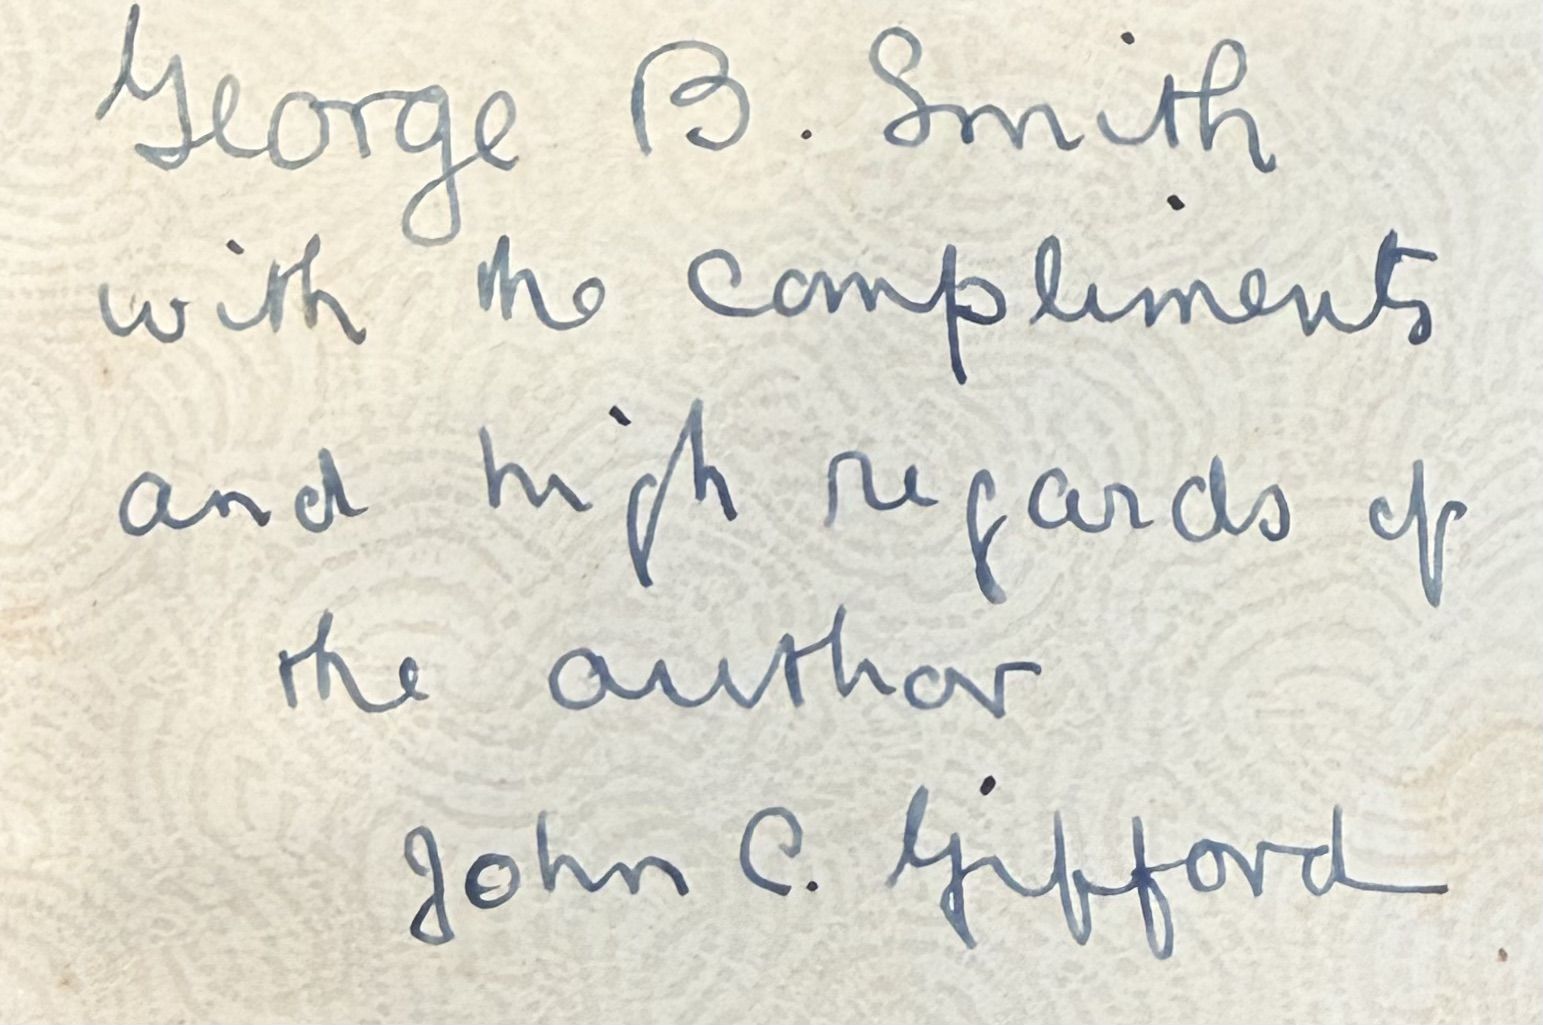 George B. Smith
with the compliments
and high regards of
the author
John C. Gifford